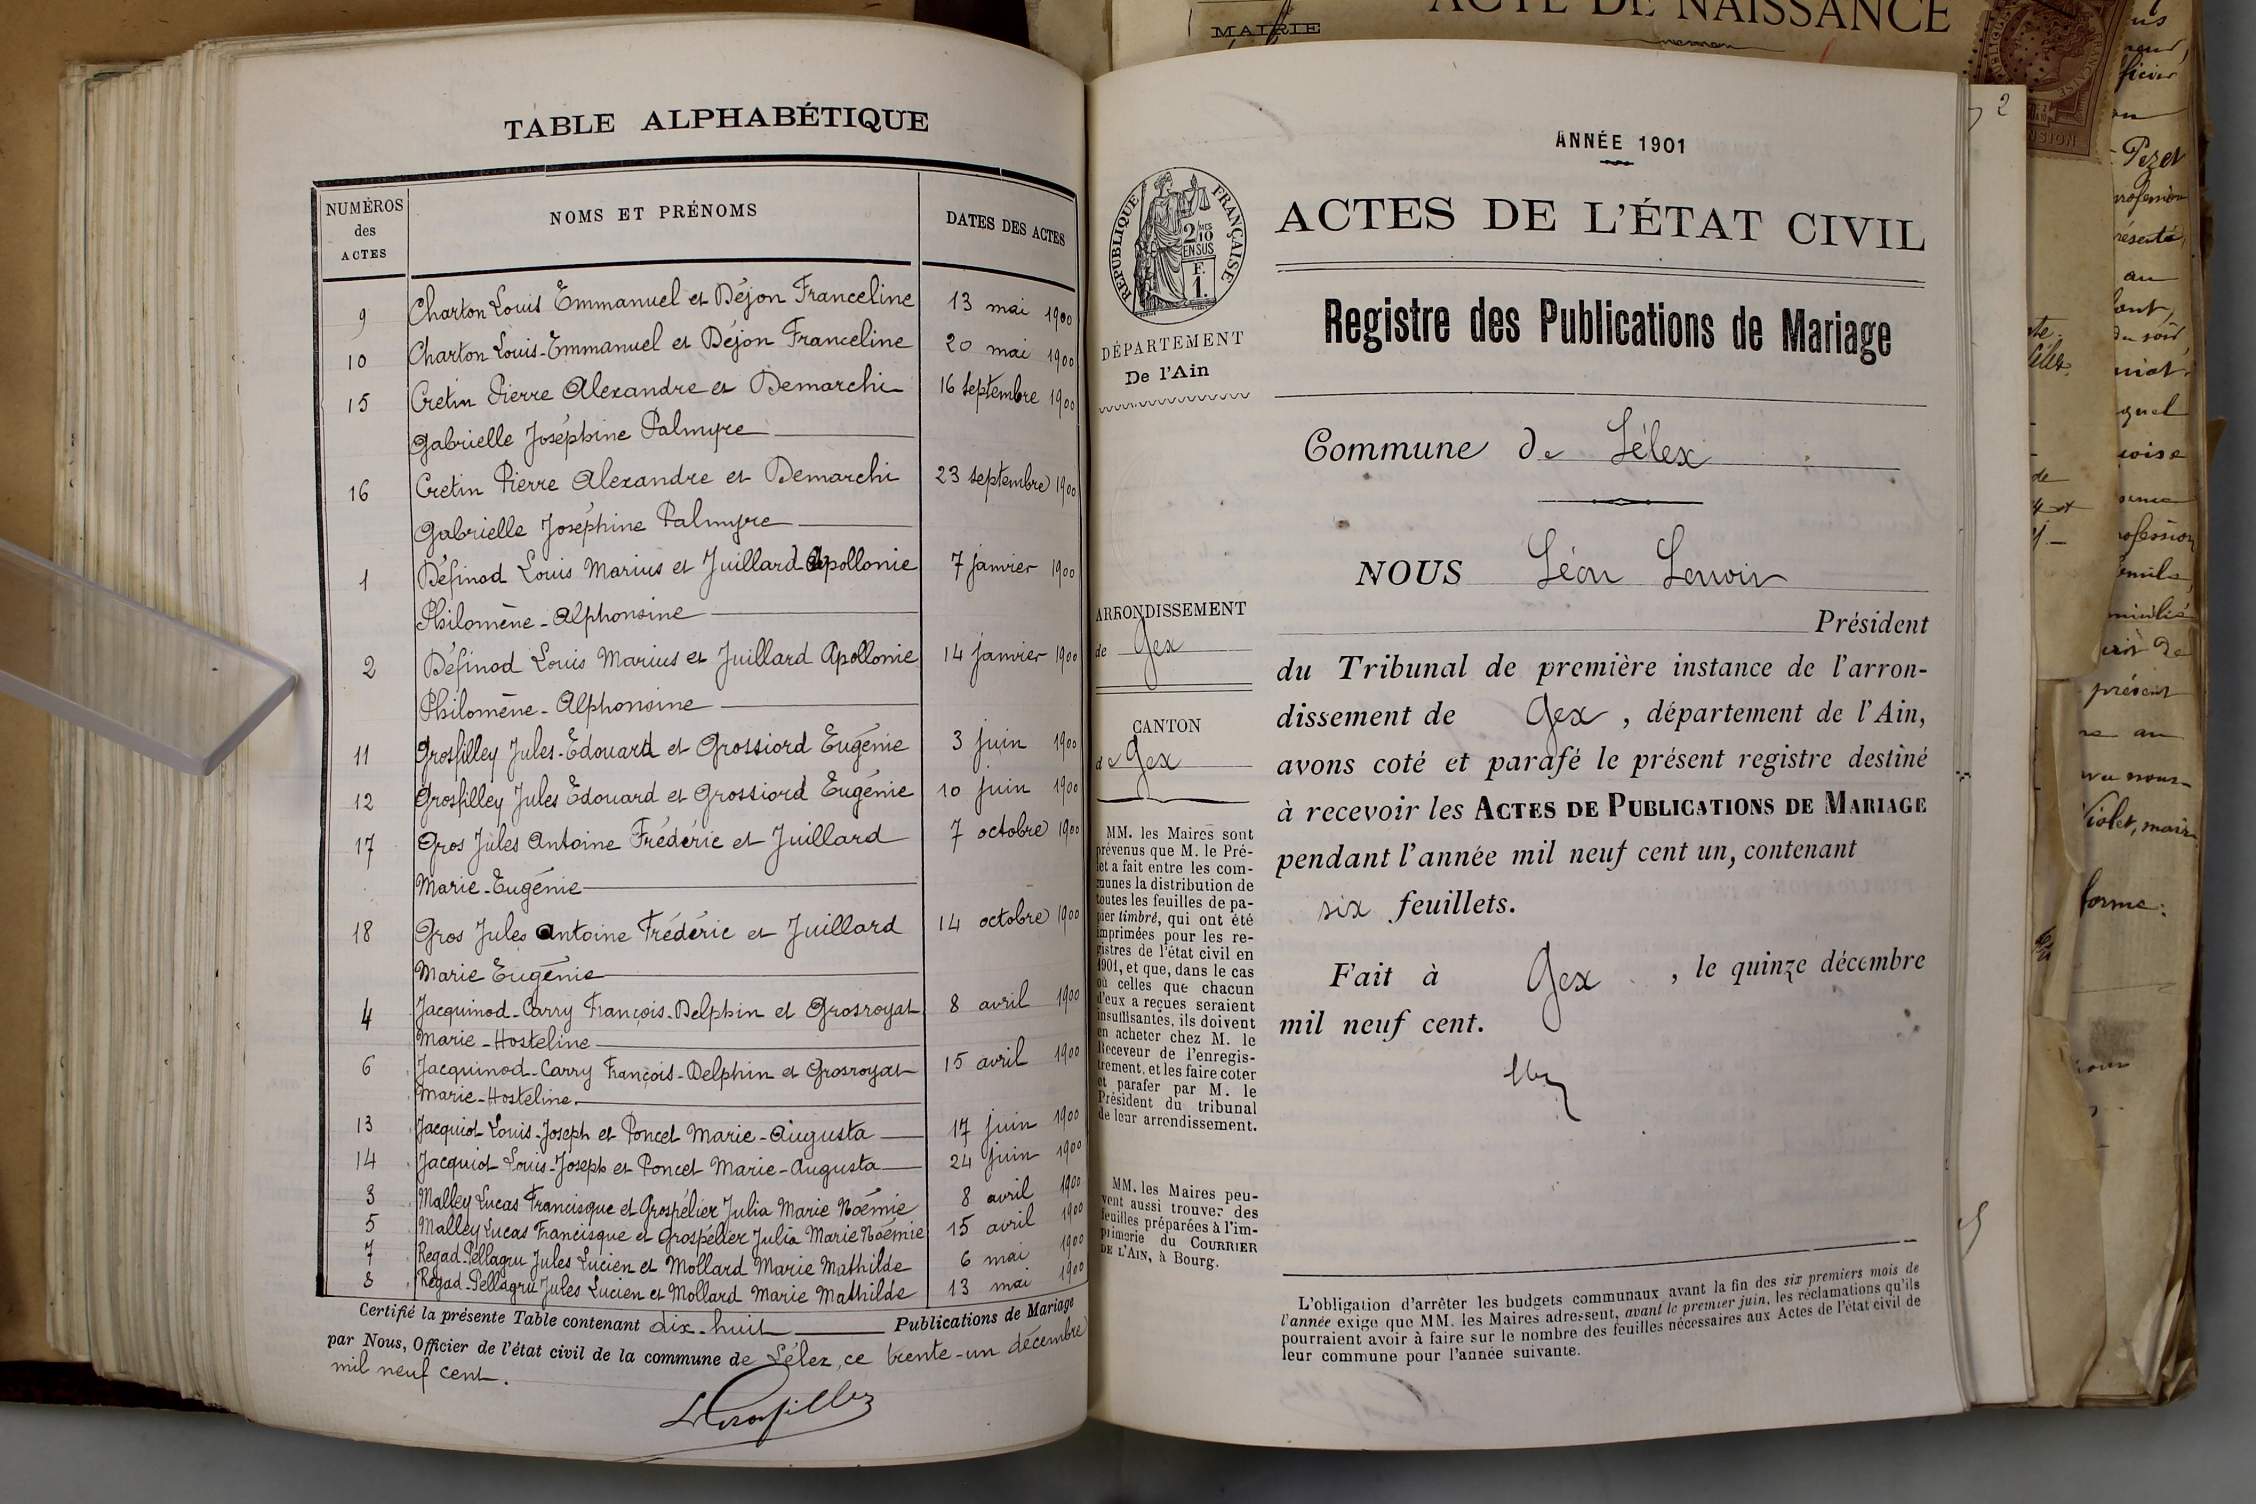 TABLE ALPHABÉTIQUE
NUMÉROS des ACTES
NOMS ET PRÉNOMS
DATES DES ACTES
9 Charton Louis Emmanuel et Déjon Franceline 13 mai 1900
10 Charton Louis-Emmanuel et Déjon Franceline 20 mai 1900
15 Cretin Pierre Alexandre et Demarchi 16 septembre 1900
Gabrielle Joséphine Palmyre
16 Cretin Pierre Alexandre et Demarchi 23 septembre 1900
Gabrielle Joséphine Palmyre
1 Définod Louis Marius et Juillard Apollonie 7 janvier 1900
Philomène-Alphonsine
2 Définod Louis Marius et Juillard Apollonie 14 janvier 1900
Philomène-Alphonsine
11 Grosfilley Jules-Edouard et Grossiord Eugénie 3 juin 1900
12 Grosfilley Jules Edouard et Grossiord Eugénie 10 juin 1900
17 Gros Jules Antoine Frédéric et Juillard 7 octobre 1900
Marie-Eugénie
18 Gros Jules Antoine Frédéric et Juillard 14 octobre 1900
Marie Eugénie
4 Jacquinod-Carry François-Delphin et Grosroyat 8 avril 1900
Marie-Hosteline
6 Jacquinod-Carry François-Delphin et Grosroyat 15 avril 1900
Marie-Hosteline.
13 Jacquiot Louis-Joseph et Poncet Marie-Augusta 17 juin 1900
14 Jacquiot Louis-Joseph et Poncet Marie-Augusta 24 juin 1900
3 Malley Lucas Francisque et Grospélier Julia Marie Noémie 8 avril 1900
5 Malley Lucas Francisque et Grospélier Julia Marie Noémie 15 avril 1900
7 Regad-Pellagru Jules Lucien et Mollard Marie Mathilde 6 mai 1900
8 Regad-Pellagru Jules Lucien et Mollard Marie Mathilde 13 mai 1900
Certifié la présente Table contenant dix-huit Publications de Mariage
par Nous, Officier de l'état civil de la commune de Lélex, ce trente-un décembre
mil neuf cent.
LGrosfilley
MAIRIE
ACTE DE NAISSANCE
ANNÉE 1901
RÉPUBLIQUE FRANÇAISE
2 MES
10
EN SUS
F.
1.
DÉPARTEMENT
De l'Ain
ARRONDISSEMENT
de Gex
CANTON
de Gex
MM. les Maires sont
prévenus que M. le Pré-
fet a fait entre les com-
munes la distribution de
toutes les feuilles de pa-
pier timbré, qui ont été
imprimées pour les re-
gistres de l'état civil en
1901, et que, dans le cas
où celles que chacun
d'eux a reçues seraient
insuffisantes, ils doivent
en acheter chez M. le
Receveur de l'enregis-
trement, et les faire coter
et parafer par M. le
Président du tribunal
de leur arrondissement.
MM. les Maires peu-
vent aussi trouver des
feuilles préparées à l'im-
primerie du COURRIER
DE L'AIN, à Bourg.
ACTES DE L'ÉTAT CIVIL
Registre des Publications de Mariage
Commune de Lélex
NOUS Léon Lenoir
Président
du Tribunal de première instance de l'arron-
dissement de Gex, département de l'Ain,
avons coté et parafé le présent registre destiné
à recevoir les ACTES DE PUBLICATIONS DE MARIAGE
pendant l'année mil neuf cent un, contenant
six feuillets.
Fait à Gex, le quinze décembre
mil neuf cent.
L'obligation d'arrêter les budgets communaux avant la fin des six premiers mois de
l'année exige que MM. les Maires adressent, avant le premier juin, les réclamations qu'ils
pourraient avoir à faire sur le nombre des feuilles nécessaires aux Actes de l'état civil de
leur commune pour l'année suivante.
2
Pezet
présent
Violet, maire
forme: